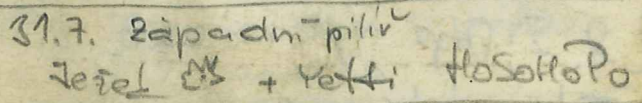 31.7. Západní pilíř
Ježek + Yetti HoSoHoPo